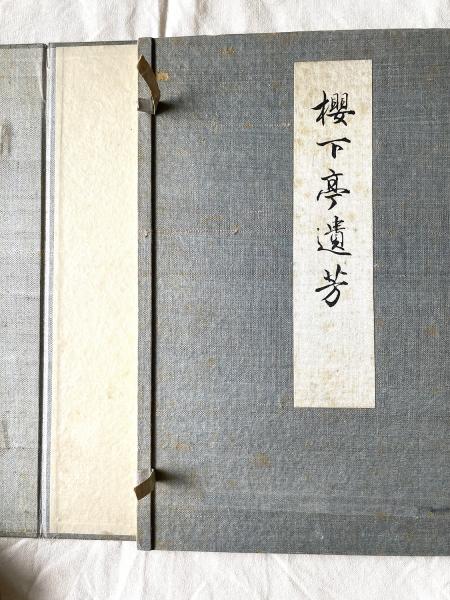 櫻下亭遺芳